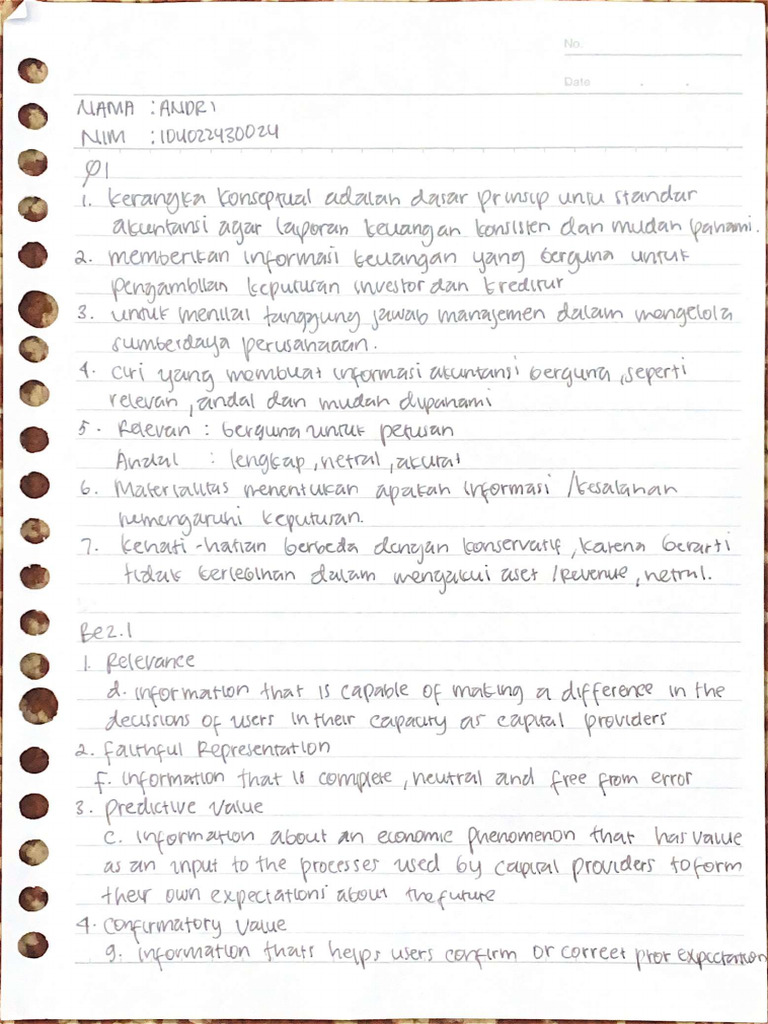 No.
Date
NAMA : ANDRI
NIM : 104022430024
Q1
1. Kerangka konseptual adalah dasar prinsip untu standar
akuntansi agar laporan keuangan konsisten dan mudah pahami.
2. memberikan informasi keuangan yang berguna untuk
pengambilan keputusan investor dan kreditur
3. untuk menilai tanggung jawab manajemen dalam mengelola
sumberdaya perusahaaan.
4. Ciri yang membuat informasi akuntansi berguna, seperti
relevan, andal dan mudah dipahami
5. Relevan : berguna untuk petusan
Andal : lengkap, netral, akurat
6. Materialitas menentukan apakah informasi /kesalahan
memengaruhi keputusan.
7. kehati-hatian berbeda dengan konservatif, karena berarti
tidak berlebihan dalam mengakui aset /Revenue, netral.
Be2.1
1. Relevance
d. information that is capable of making a difference in the
decissions of users in their capacity as capital providers
2. Faithful Representation
f. information that is complete, neutral and free from error
3. predictive value
c. information about an economic phenomenon that has value
as an input to the processes used by capital providers to form
their own expectations about the future
4. confirmatory value
g. information thats helps users confirm or correct prior expectation